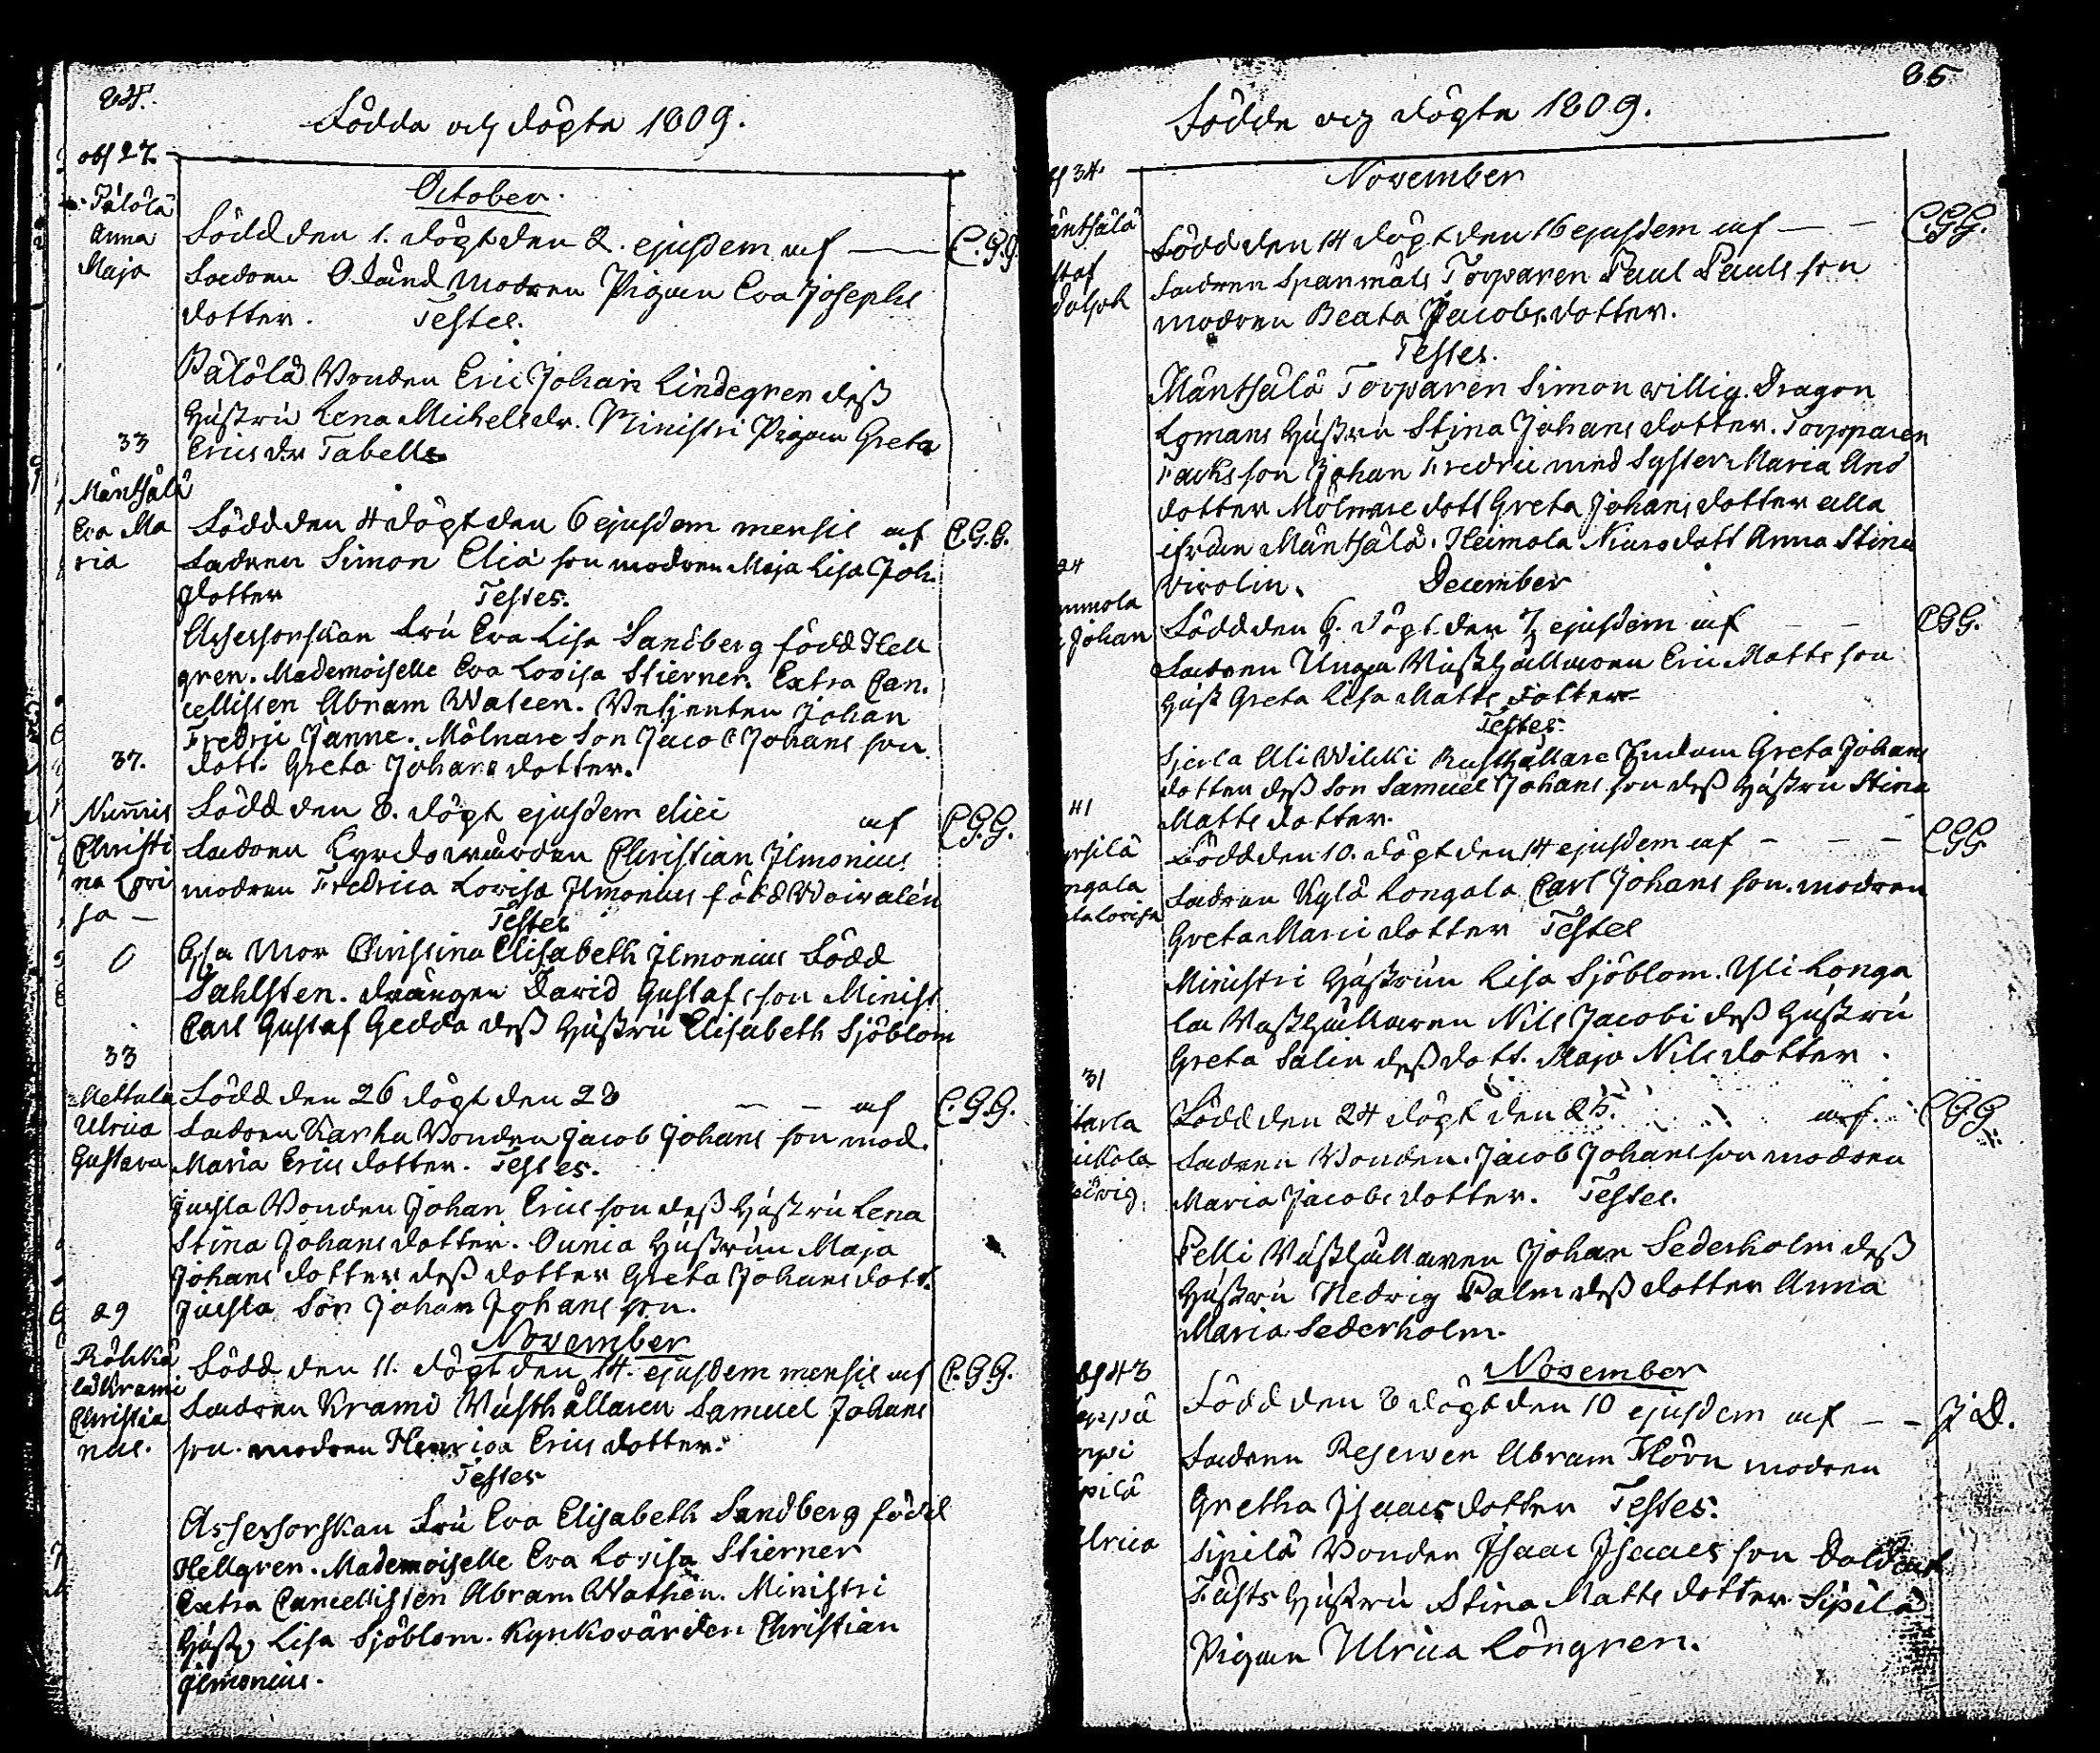 84.
Födda och döpta 1809.
obs 27.
October.
Pälölä
Anna
Maja
Född den 1. döpt den 2. ejusdem af — C.G.G.
Fadren Okänd Modren Pigan Eva Josephs
dotter. Testes.
Pälölä Bonden Eric Johan Lindegren dess
Hustru Lena Michelsdr. Ministri Pigan Greta
Ericsdr Tabelle
33
Mäntsälä
Eva Ma
ria
Född den 4 döpt den 6 ejusdem mensis af C.G.G.
Fadren Simon Elia son modren Maja Lisa Joh.
dotter Testes.
Assessorskan Fru Eva Lisa Sandberg född Hell
gren. Mademoiselle Eva Lovisa Stierner. Extra Can.
cellisten Abram Wateen. Betjenten Johan
Fredric Janne. Mölnare Son Jacob Johans son
dott. Greta Johans dotter.
37.
Nummis
Christi
na Lovi
sa —
Född den 8. döpt ejusdem diei af C.G.G.
Fadren Kyrckovärden Christian Ilmonius
modren Fredrica Lovisa Ilmonius född Woivalén
Testes
Mor Christina Elisabeth Ilmonius Född
Sahlsten. drängen David Gustafsson Minist
Carl Gustaf Gedda dess Hustru Elisabeth Sjöblom
33
Mettula
Ulrica
Gustava
Född den 26 döpt den 28 — — af C.G.G.
Fadren Karhu Bonden Jacob Johans son mod.
Maria Erics dotter. Testes.
Jussla Bonden Johan Erics son dess Hustru Lena
Stina Johans dotter. Ounia Hustrun Maja
Johans dotter dess dotter Greta Johans dott.
Jussla Son Johan Johans son.
29
November
Röhkä
lä Krami
Christia
nus.
Född den 11. döpt den 14. ejusdem mensis af C.G.G.
Fadren Krami Rusthållaren Samuel Johans
son. modren Henrica Erics dotter.
Testes
Assessorskan Fru Eva Elisabeth Sandberg född
Hellgren. Mademoiselle Eva Lovisa Stierner
Extra Cancellisten Abram Wathén. Ministri
Hust. Lisa Sjöblom. Kyrkovärden Christian
Ilmonius.
85
Födda och döpta 1809.
34.
November
äntsälä
staf
dolph
Född den 14 döpt den 16 ejusdem af — — C.G.G.
Fadren Spanmåls Torparen Paul Pauls son
modren Beata Jacobs dotter.
Testes.
Mäntsälä Torparen Simon Willig. Dragon
Lomans Hustru Stina Johans dotter. Torpparen
son Johan Fredric med Syster Maria And
dotter Mölnare dott Greta Johans dotter alla
ifrån Mäntsälä. Heimola dott Anna Stina
Virolin.
December
24
mmola
Johan
Född den 6. döpt den 7 ejusdem af — — C.G.G.
Fadren Unga Rusthållaren Eric Matts son
Hust Greta Lisa Matts dotter
Testes.
Ali Wilcki Rusthållare Enckan Greta Johans
dotter dess Son Samuel Johans son dess Hustru Stina
Matts dotter.
41
yrsilä
ngala
ta Lovisa
Född den 10. döpt den 14 ejusdem af — — — C.G.G.
Fadren Kylä Longala Carl Johans son. modren
Greta Maria dotter Testes
Ministri Hustrun Lisa Sjöblom. Yli Longa
la Rusthållaren Nils Jacobi dess Hustru
Greta Salin dess dott. Maja Nils dotter.
31
Född den 24 döpt den 25. af. C.G.G.
tarla
uckola
Hedvig.
Fadren Bonden. Jacob Johans son modren
Maria Jacobs dotter. Testes.
Pelli Rusthållaren Johan Sederholm dess
Hustru Hedvig Palm dess dotter Anna
Maria Sederholm.
obs 43
November
Född den 8 döpt den 10 ejusdem af — — J D.
pilä
Ulrica
Fadren Reserven Abram Hörn modren
Gretha Isaacs dotter Testes.
Sipilä Bonden Isaac Isaacs son Soldat
Fästs Hustru Stina Matts dotter Sipilä
Pigan Ulrica Löngren.